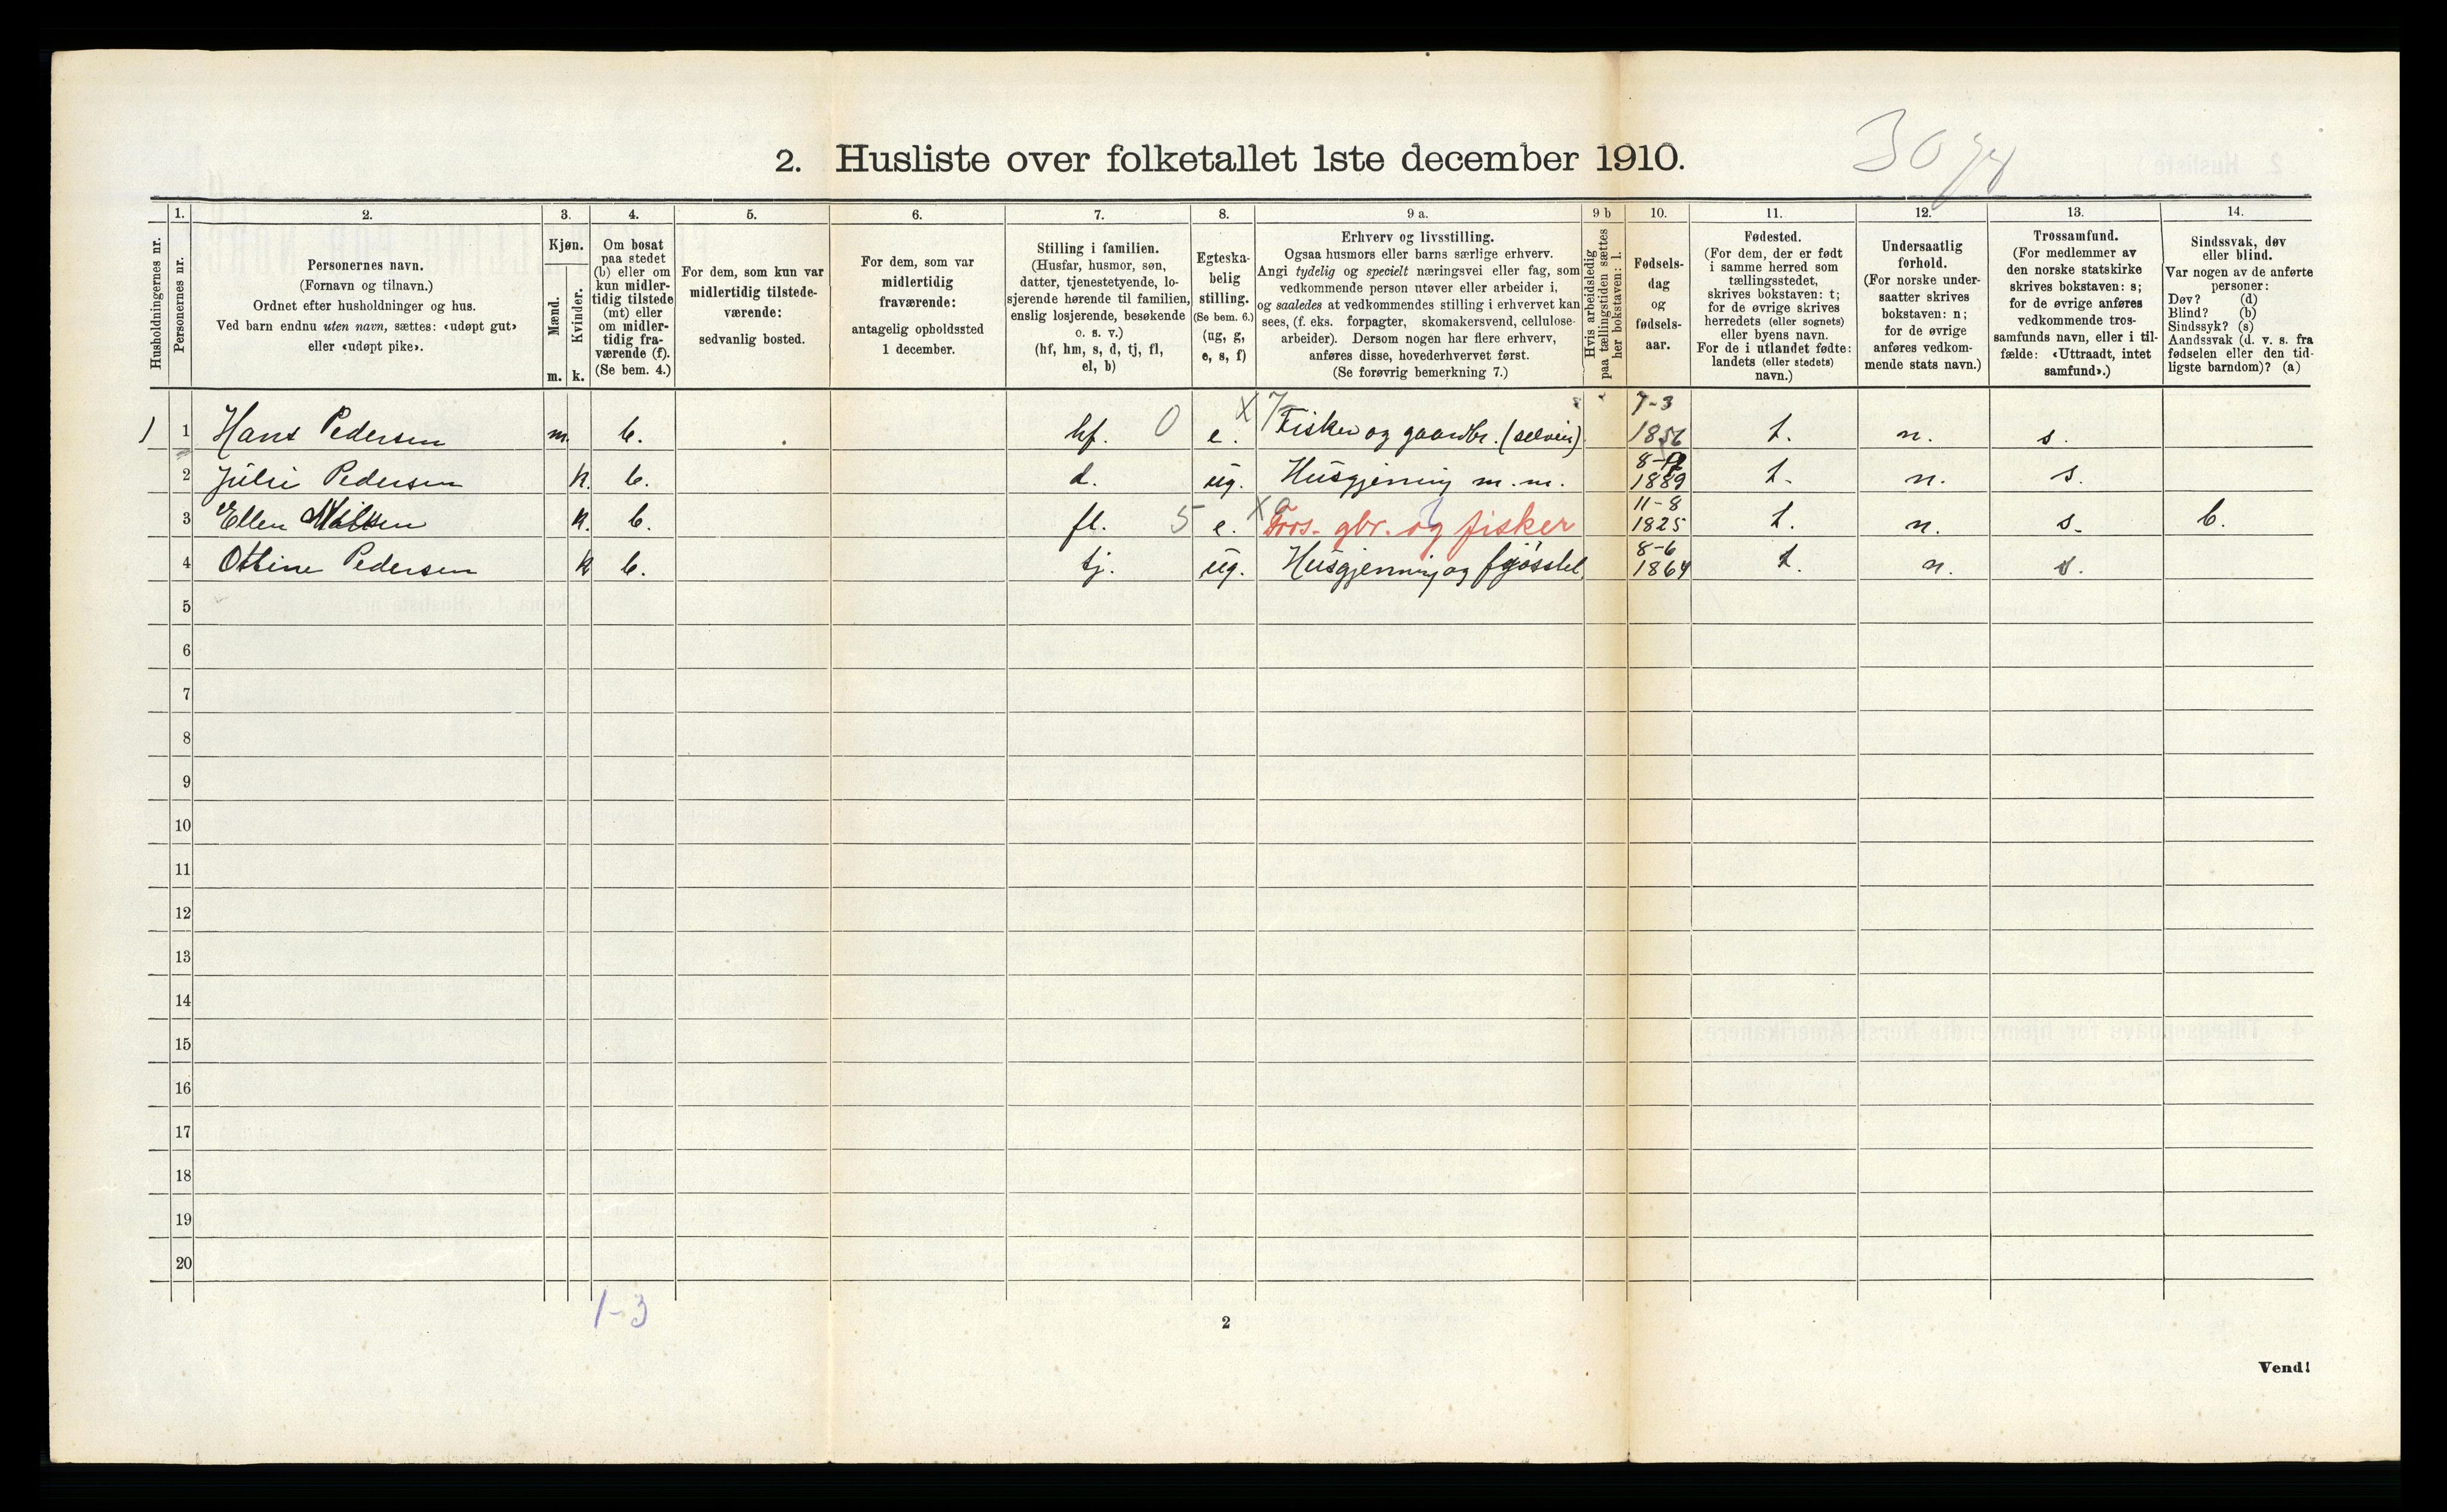 2. Husliste over folketallet 1ste december 1910.
Husholdningernes nr.
1. Personernes nr.
2. Personernes navn.
(Fornavn og tilnavn.)
Ordnet efter husholdninger og hus.
Ved barn endnu uten navn, sættes: «udøpt gut»
eller «udøpt pike».
3. Kjøn.
Mænd. m.
Kvinder. k.
4. Om bosat
paa stedet
(b) eller om
kun midler-
tidig tilstede
(mt) eller
om midler-
tidig fra-
værende (f).
(Se bem. 4.)
5. For dem, som kun var
midlertidig tilstede-
værende:
sedvanlig bosted.
6. For dem, som var
midlertidig
fraværende:
antagelig opholdssted
1 december.
7. Stilling i familien.
(Husfar, husmor, søn,
datter, tjenestetyende, lo-
sjerende hørende til familien,
enslig losjerende, besøkende
o. s. v.)
(hf, hm, s, d, tj, fl,
el, b)
8. Egteska-
belig
stilling.
(Se bem. 6.)
(ug, g,
e, s, f)
9 a. Erhverv og livsstilling.
Ogsaa husmors eller barns særlige erhverv.
Angi tydelig og specielt næringsvei eller fag, som
vedkommende person utøver eller arbeider i,
og saaledes at vedkommendes stilling i erhvervet kan
sees, (f. eks. forpagter, skomakersvend, cellulose-
arbeider). Dersom nogen har flere erhverv,
anføres disse, hovederhvervet først.
(Se forøvrig bemerkning 7.)
9 b Hvis arbeidsledig
paa tællingstiden sættes
her bokstaven: l.
10. Fødsels-
dag
og
fødsels-
aar.
11. Fødested.
(For dem, der er født
i samme herred som
tællingsstedet,
skrives bokstaven: t;
for de øvrige skrives
herredets (eller sognets)
eller byens navn.
For de i utlandet fødte:
landets (eller stedets)
navn.)
12. Undersaatlig
forhold.
(For norske under-
saatter skrives
bokstaven: n;
for de øvrige
anføres vedkom-
mende stats navn.)
13. Trossamfund.
(For medlemmer av
den norske statskirke
skrives bokstaven: s;
for de øvrige anføres
vedkommende tros-
samfunds navn, eller i til-
fælde: «Uttraadt, intet
samfund».)
14. Sindssvak, døv
eller blind.
Var nogen av de anførte
personer:
Døv? (d)
Blind? (b)
Sindssyk? (s)
Aandssvak (d. v. s. fra
fødselen eller den tid-
ligste barndom)? (a)
1) 1 Hans Pedersen m. b. hf. 0 e. X 7 Fisker og gaardbr. (selveier) 7-3 1856 t. n. s.
2 Julie Pedersen k. b. d. ug. Husgjerning m.m. 1889 t. n. s.
3 Ellen k. b. fl. 5 e. X Fors. gbr. og fisker 11-8 1825 t. n. s. b.
4 Ottine Pedersen k b. tj. ug. Husgjerning og fjøsstel 8-6 1864 t. n. s.
5
6
7
8
9
10
11
12
13
14
15
16
17
18
19
20
1-3
2
Vend!